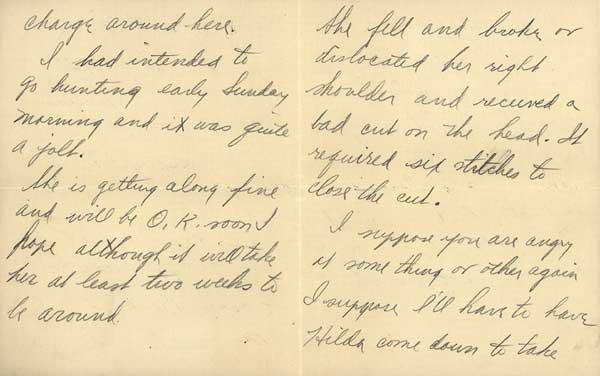 charge around here.
I had intended to
go hunting early Sunday
morning and it was quite
a jolt.
She is getting along fine
and will be O.K. soon I
hope although it will take
her at least two weeks to
be around.
She fell and broke or
dislocated her right
shoulder and received a
bad cut on the head. It
required six stitches to
close the cut.
I suppose you are angry
at some thing or other again
I suppose I'll have to have
Hilda come down to take